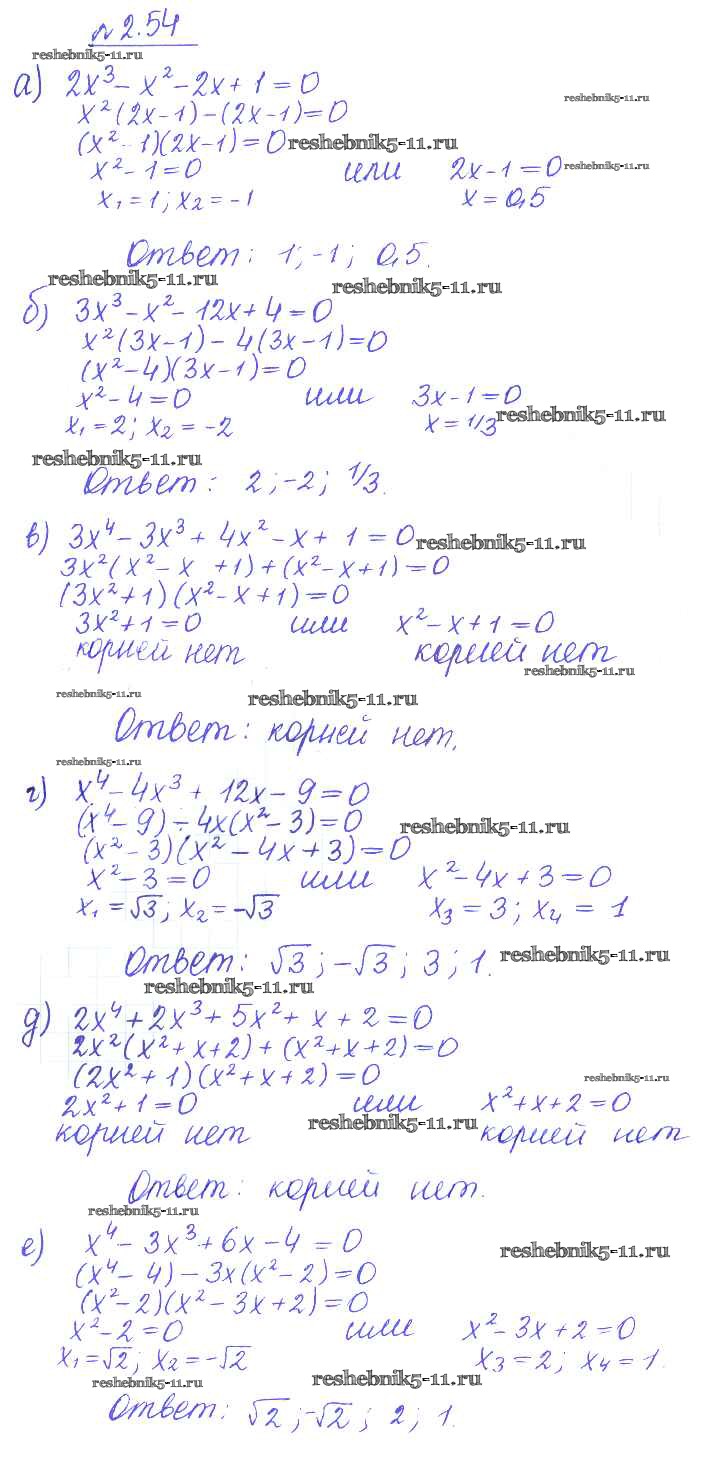 № 2.54
reshebnik5-11.ru
а) 2x³ - x² - 2x + 1 = 0
reshebnik5-11.ru
x²(2x-1) - (2x-1) = 0
(x² - 1)(2x-1) = 0 reshebnik5-11.ru
x² - 1 = 0 или 2x - 1 = 0 reshebnik5-11.ru
x₁ = 1; x₂ = -1 x = 0,5
Ответ: 1; -1; 0,5.
reshebnik5-11.ru reshebnik5-11.ru
б) 3x³ - x² - 12x + 4 = 0
x²(3x-1) - 4(3x-1) = 0
(x² - 4)(3x-1) = 0
x² - 4 = 0 или 3x - 1 = 0
x₁ = 2; x₂ = -2 x = 1/3 reshebnik5-11.ru
reshebnik5-11.ru
Ответ: 2; -2; 1/3.
в) 3x⁴ - 3x³ + 4x² - x + 1 = 0 reshebnik5-11.ru
3x²(x² - x + 1) + (x² - x + 1) = 0
(3x² + 1)(x² - x + 1) = 0
3x² + 1 = 0 или x² - x + 1 = 0
корней нет корней нет
reshebnik5-11.ru
reshebnik5-11.ru reshebnik5-11.ru
Ответ: корней нет.
reshebnik5-11.ru
г) x⁴ - 4x³ + 12x - 9 = 0
(x⁴ - 9) - 4x(x² - 3) = 0 reshebnik5-11.ru
(x² - 3)(x² - 4x + 3) = 0
x² - 3 = 0 или x² - 4x + 3 = 0
x₁ = √3; x₂ = -√3 x₃ = 3; x₄ = 1
Ответ: √3; -√3; 3; 1. reshebnik5-11.ru
reshebnik5-11.ru
д) 2x⁴ + 2x³ + 5x² + x + 2 = 0
2x²(x² + x + 2) + (x² + x + 2) = 0
(2x² + 1)(x² + x + 2) = 0
reshebnik5-11.ru
2x² + 1 = 0 или x² + x + 2 = 0
корней нет reshebnik5-11.ru корней нет
Ответ: корней нет.
reshebnik5-11.ru
е) x⁴ - 3x³ + 6x - 4 = 0 reshebnik5-11.ru
(x⁴ - 4) - 3x(x² - 2) = 0
(x² - 2)(x² - 3x + 2) = 0
x² - 2 = 0 или x² - 3x + 2 = 0
x₁ = √2; x₂ = -√2 x₃ = 2; x₄ = 1.
reshebnik5-11.ru reshebnik5-11.ru
Ответ: √2; -√2; 2; 1.